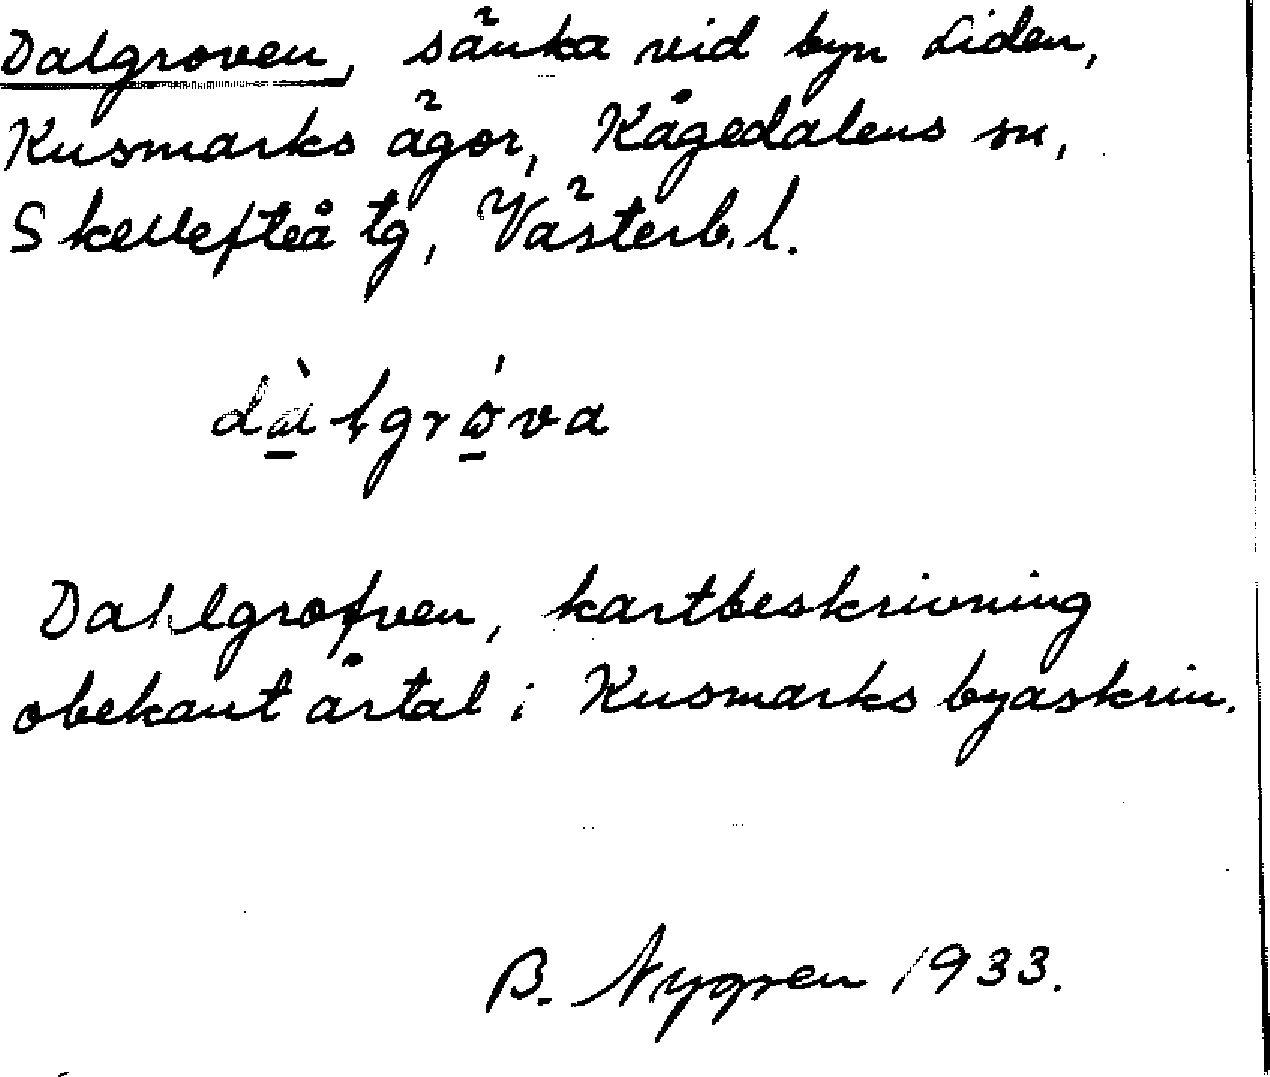 Dalgroven, sänka vid byn Liden,
Kusmarks ägor, Kågedalens sn,
Skellefteå tg, Västerb. l.
dàlgrǿva
Dahlgrofven, kartbeskrivning
obekant årtal i Kusmarks byaskrin.
B. Nygren 1933.